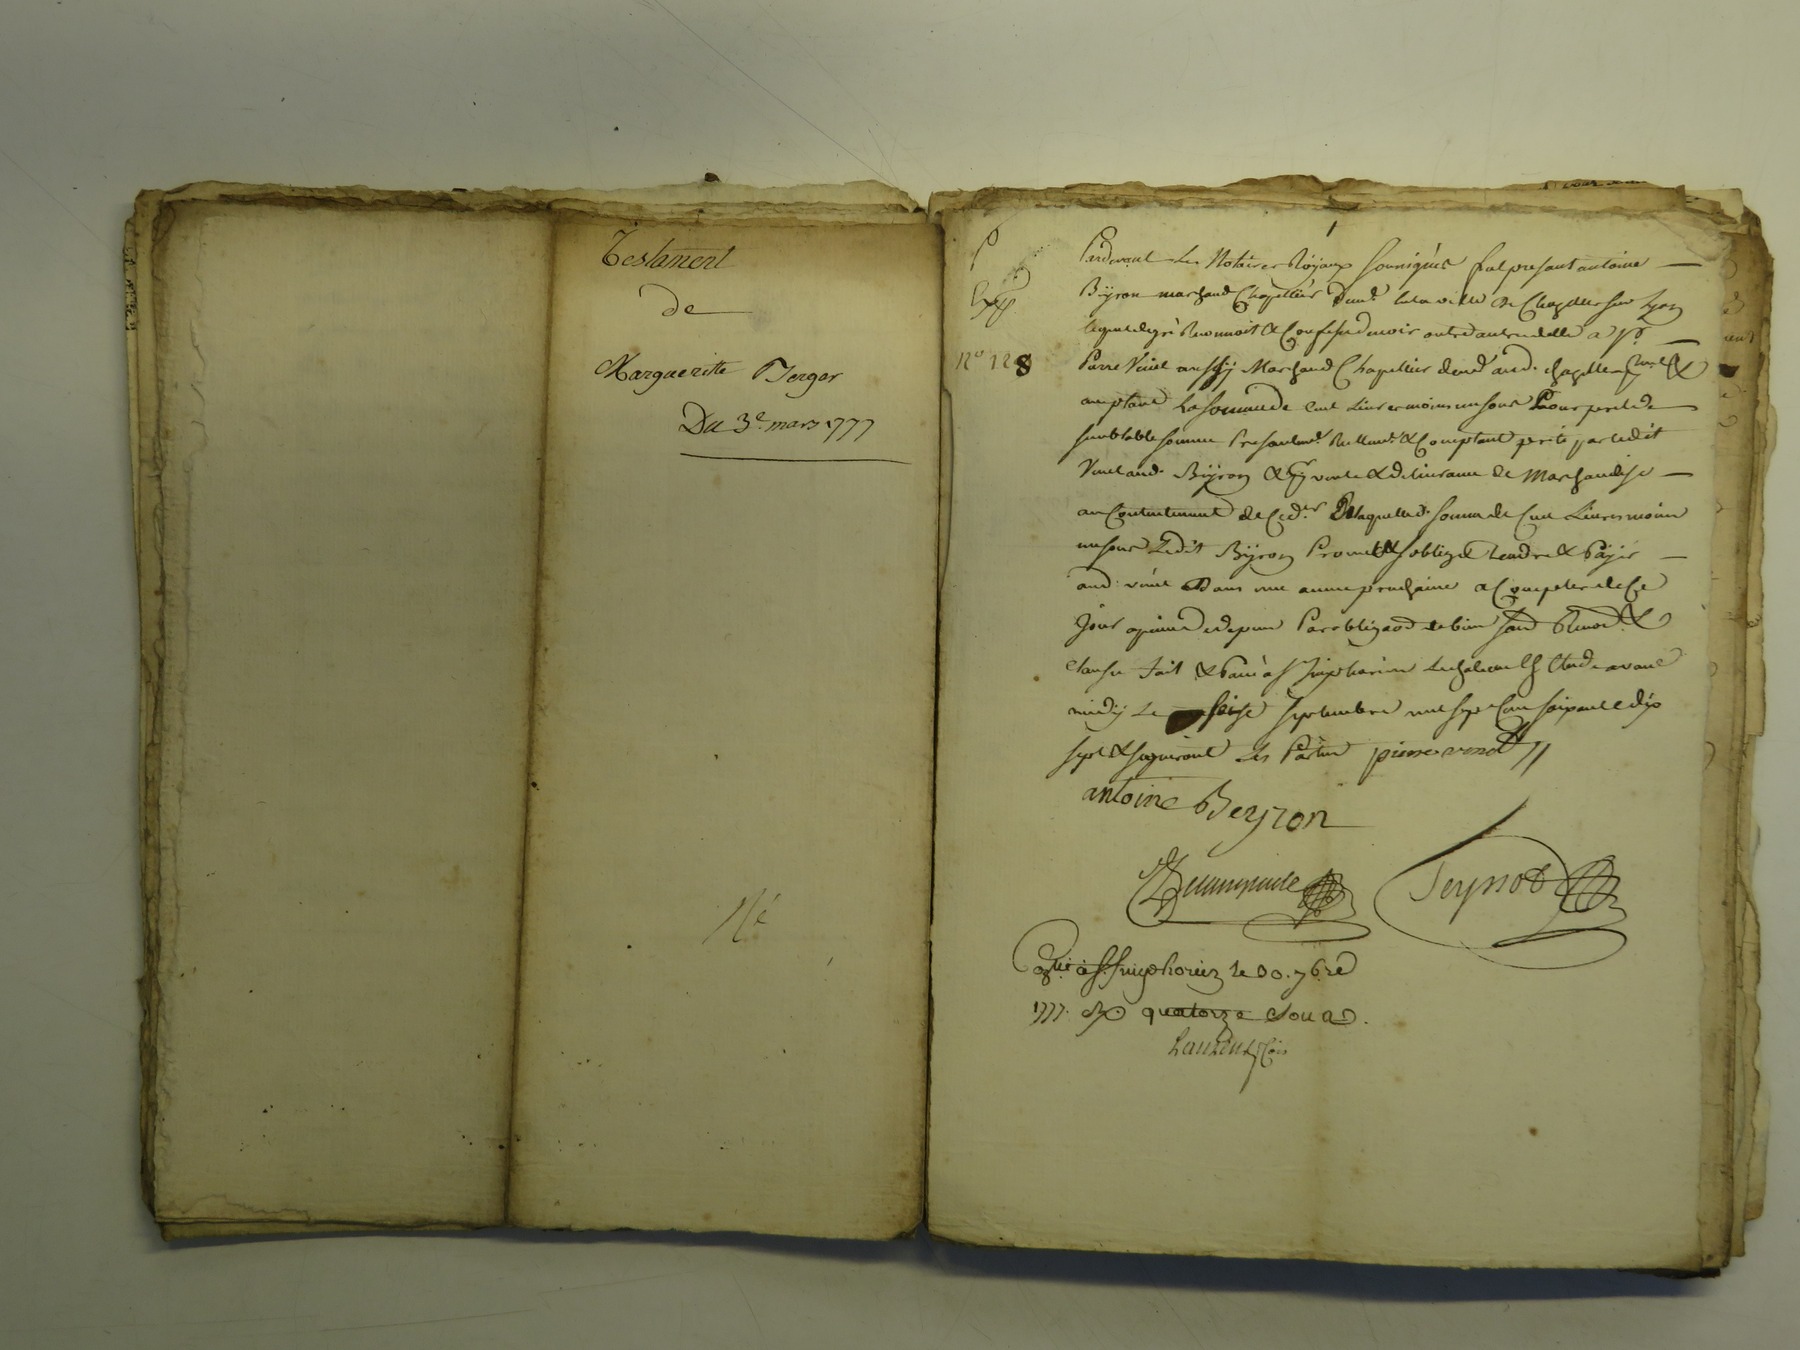 Testament
de
Margueritte Berger
Du 3e. mars 1777
Né
P
Exp
N° 128
Pardevant Les Notaires Royaux soussignés fut present antoine
Beyron marchand Chapellier dem.t en la ville de Chazelle sur Lyon
lequel de gré Reconnoit & Confesse devoir outre autre dette a Sr
Pierre Vinet aussy Marchand Chapellier dem.t aud. chazelle
acceptant La somme de Cent Livres moins un sous Pour pret de
semblable somme Presentem.t Réellem.t & Comptant preté par ledit
Vinet aud. Beyron & vente & delivrance de Marchandise
au Contentement de Ced.er De laquelle d. somme de Cent Livres moins
un sous Ledit Beyron Promet & s'oblige Rendre & Payer
aud. vinet Dans une année prochaine a Compter de Ce
Jour apeine de depens Par obligaon de biens
clause fait & Passé a St Simphorien Le chateau Etude avant
midy Le seize septembre mil sept Cent soixante dix
sept & signeront Les Parties pierre vinet
antoine Beyron
Teyssot
St. Simphorien le 30. 7bre
1777. quatorze sous
Laurenson